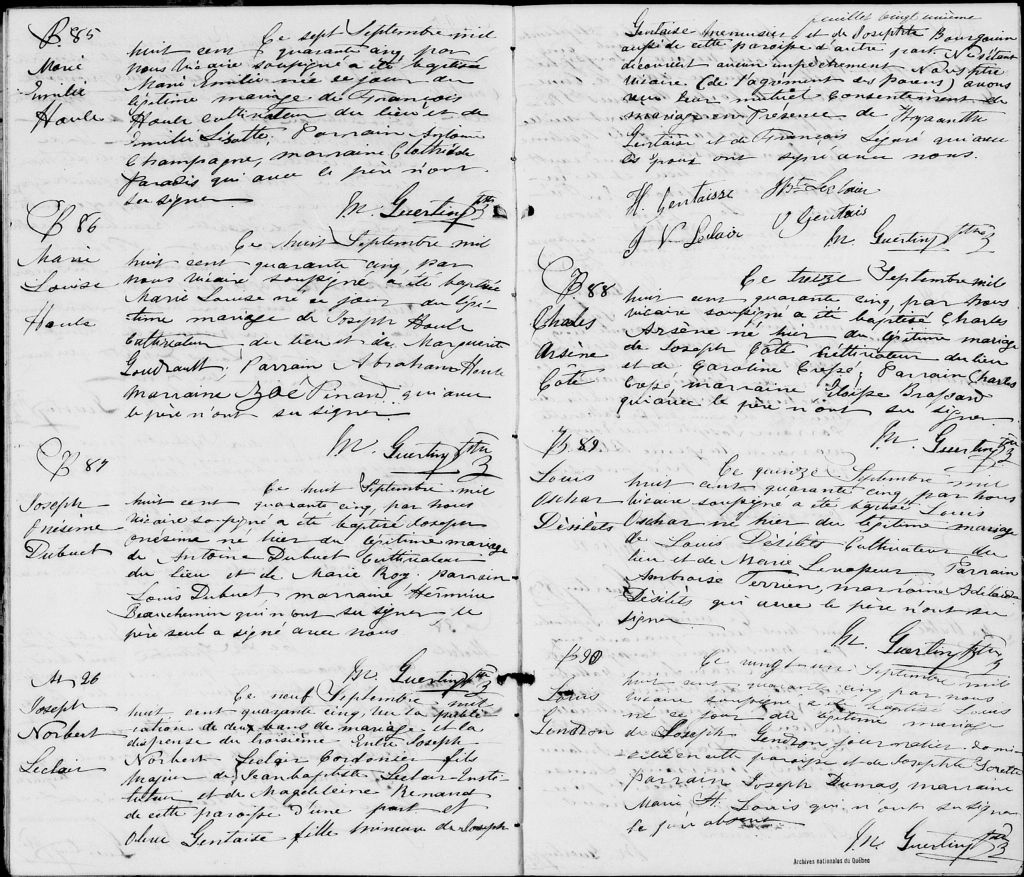 B. 85
Marie
Emilie
Houle
Ce sept Septembre mil
huit cent quarante cinq par
nous vicaire soussigné a été baptisée
Marie Emilie née ce jour du
légitime mariage de François
Houle cultivateur du lieu et de
Emilie Parrain Antoine
Champagne, marraine Clothilde
Paradis qui avec le père n'ont
su signer
M. Guertin ptre
B 86
Marie
Louise
Houle
Ce huit Septembre mil
huit cent quarante cinq, par
nous vicaire soussigné a été baptisée
Marie Louise né ce jour du légi-
time mariage de Joseph Houle
Cultivateur du lieu et de Marguerite
Goudrault; Parrain Abraham Houle
marraine Zoé Pinard qui avec
le père n'ont su signer
M. Guertin ptre
B 87
Joseph
Onésime
Dubuct
Ce huit Septembre mil
huit cent quarante cinq, par nous
vicaire soussigné a été baptisé Joseph
onesime né hier du légitime mariage
de Antoine Dubuct Cultivateur
du lieu et de Marie Roy. parrain
Louis Dubuct marraine Hermine
Beauchemin qui n'ont su signer le
père seul a signé avec nous
M. Guertin ptre
M 26
Joseph
Norbert
Leclair
Ce neuf Septembre mil
huit cent quarante cinq, vu la publi-
cation de deux bans de mariage et la
dispense du troisième Entre Joseph
Norbert Leclair Cordonier fils
Majeur de Jeanbaptiste Leclair Insti-
tuteur et de Magdeleine Renaud
de cette paroisse d'une part et
Olive Gentaise fille mineure de Joseph
feuillet vingt unième
Gentaise menuisier et de Josephte Bourgouin
aussi de cette paroisse d'autre part Ne s'étant
découvert aucun empêchement Nous ptre
vicaire (de l'agrément des parens) avons
reçu leur mutuel Consentement de
mariage en Présence de Hyacinthe
Gentaise et de François qui avec
les époux ont signé avec nous.
H. Gentaisse Leclair
J N Leclair O Gentais
M. Guertin ptre
B 88
Charles
Arsène
Côté
Ce treize Septembre mil
huit cent quarante cinq, par nous
vicaire soussigné a été baptisé Charles
Arsène né hier du légitime mariage
de Joseph Côté Cultivateur du lieu
et de Caroline Parrain Charles
marraine Brassard
qui avec le père n'ont su signer
M. Guertin ptre
B 89
Louis
Oschar
Désilets
Ce quinze Septembre mil
huit cent quarante cinq, par nous
vicaire soussigné a été baptisé Louis
Oschar né hier du légitime mariage
de Louis Désilets Cultivateur du
lieu et de Marie Levasseur Parrain
Ambroise Terrien, marraine
Désilets qui avec le père n'ont su
signer
M. Guertin ptre
B 90
Louis
Gendron
Ce Septembre mil
huit cent quarante cinq par nous
vicaire soussigné, a été baptisé Louis
né ce jour du légitime mariage
de Joseph Gendron journalier domi-
cilié en cette paroisse et de Josephte
parrain Joseph Dumas, marraine
Marie St Louis qui n'ont su signer
le père absent
M. Guertin ptre
Archives nationales du Québec